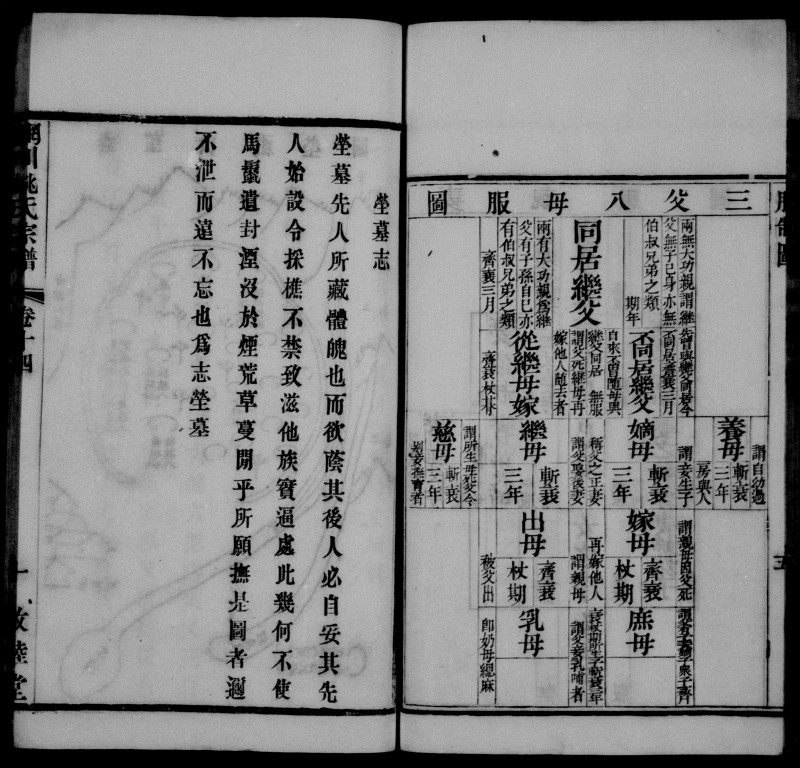 三父八母服圖
兩無大功親謂繼
父無子已身亦無
伯叔兄弟之類
期年
同居繼父
兩有大功親為繼
父有子孫自己亦
有伯叔兄弟之類
齊衰三月
先曾與繼父同居今
不同居齊衰三月
不同居繼父
自來不曾隨母與
繼父同居 無服
謂父死繼母再
嫁他人隨去者
從繼母嫁
齊衰杖期
謂自幼過
房與人
養母
斬衰
三年
謂妾生子
稱父之正妻
嫡母
斬衰
三年
謂父娶後妻
繼母
斬衰
三年
謂所生母死父令
別妾撫育者
慈母
斬衰
三年
謂親母因父死
再嫁他人
嫁母
齊衰
杖期
謂親母
被父出
出母
齊衰
杖期
謂父妾
嫡子衆子齊
衰杖期所生子斬衰三年
庶母
謂父妾乳哺者
即奶母緦麻
乳母
塋墓志
塋墓先人所藏體魄也而欲蔭其後人必自妥其先
人始設令採樵不禁致滋他族實逼處此幾何不使
馬鬣遺封湮沒於煙荒草蔓閒乎所願撫是圖者邇
不泄而遠不忘也為志塋墓
川姚氏宗譜
卷十四
一
敦睦堂